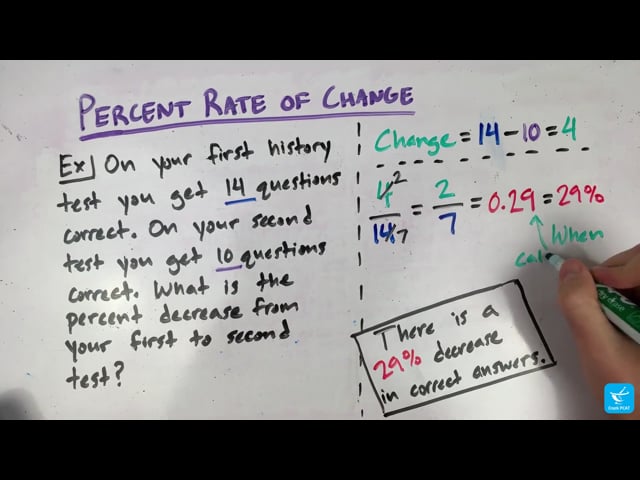 PERCENT RATE OF CHANGE
Ex) On your first history
test you get 14 questions
correct. On your second
test you get 10 questions
correct. What is the
percent decrease from
your first to second
test?
Change = 14 - 10 = 4
4 2 / 14 7 = 2/7 = 0.29 = 29%
When
cal
There is a
29% decrease
in correct answers.
Crash PCAT